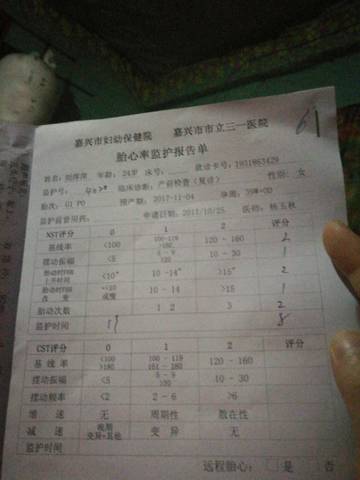 嘉兴市妇幼保健院 嘉兴市市立三一医院
胎心率监护报告单
姓名: 年龄: 24岁 床号: 就诊卡号: 1931863429
监护号: 临床诊断: 产前检查(复诊) 性别: 女
胎次: G1 P0 预产期: 2017-11-04 孕周: 39W+0D
监护前曾用药: 申请日期: 2017/10/25 医师: 杨玉秋
NST评分 0 1 2 评分
基线率 <100 100-119 120 - 160 2
摆动振幅 <5 5 - 9 10 - 30 1
胎动时FHR上升时间 <10" 10 -14" >15" 2
胎动时FHR改变 <10 10 - 14 >15 1
胎动次数 1 2 3 2
监护时间 8
CST评分 0 1 2 评分
基线率 <100 >180 100 - 119 161 - 180 120 - 160
摆动振幅 <5 5 - 9 >30 10 - 30
摆动频率 <2 2 - 6 >6
增速 无 周期性 散在性
减速 晚期 变异+其他 变异 无
监护时间
远程胎心: 是 否